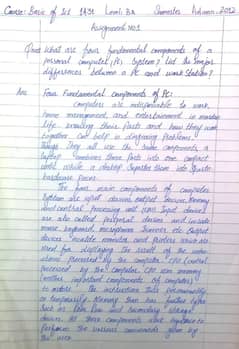 Course: Basic of Ict 1431 Level: BA Semester Autumn-2012
Assignment No1
Q no1 what are four fundamental components of a
personal computer (Pc) system? List the major
differences between a Pc and work station?
Ans Four Fundamental components of Pc:
Computers are indispensable to work,
home management and entertainment in modern
life knowing their parts and how they work
together can help in diagnosing problems.
things They all use the same components, a
laptop combines these parts into one compact
while a desktop separates them into
hardware pieces.
The four main components of computer
system are input devices, output devices, Memory
and central processing unit (cpu) Input devices
are also called peripheral devices and include
mouse keyboard, microphone scanner etc. output
devices include monitor and printers which are
used for displaying the result of the
processed by the computer CPU (central
(another important components of computer)
to the instruction
or temporarily Memory then has further types
such as Ram Rom and secondary storage
devices. All these components work together to
perform the various commands given by
the user.